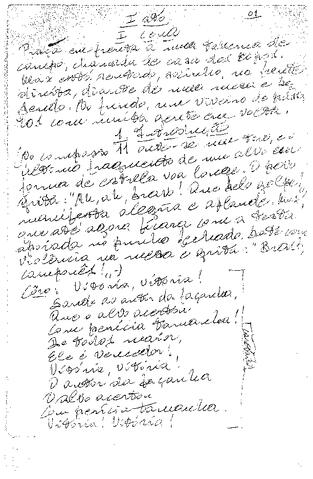 01
I ato
I cena
Praça em frente à uma taverna de
campo, chamada de casa dos tiros.
Max está sentado, sozinho, na frente
direita, diante de uma mesa e be-
bendo. Ao fundo, um viveiro de pássa
ros com muita gente em volta.
1. Introdução
No compasso 11 ouve-se um tiro, e o
último fragmento de um alvo em
forma de estrela voa longe. O povo
grita: "Ah, ah, bravo! Que belo golpe!
manifesta alegria e aplaude. Max,
que até agora ficara com a testa
apoiada no punho fechado, bate com
violência na mesa e grita: "Bravo,
camponês!
Côro: Vitória, Vitória!
Saude ao autor da façanha,
Que o alvo acertou
Com perícia tamanha!
De todos maior,
Ele é vencedor!
Vitória, Vitória!
O autor da façanha
O alvo acertou
Com perícia tamanha.
Vitória! Vitória!